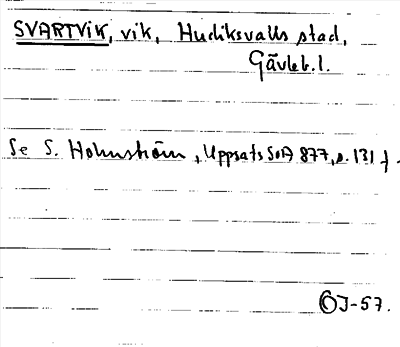 SVARTVIK, vik, Hudiksvalls stad,
Gävleb.l.
Se S. Holmström, Uppsats SoA 877, s. 131 f.
OJ-57.